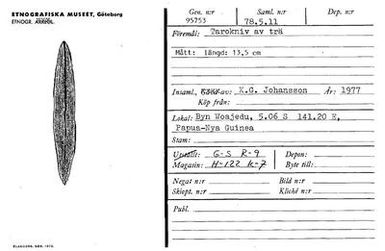 ETNOGRAFISKA MUSEET, Göteborg
ETNOGR. AVDELN.
Gen. n:r 95753
Saml. n:r 78.5.11
Föremål: Tarokniv av trä
Mått: längd: 13,5 cm
Insaml. av: K.G. Johansson År: 1977
Köp från:
Lokal: Byn Woajedu, 5.06 S 141.20 E,
Papua-Nya Guinea
Stam:
G-S R-9 Depon:
Magasin: H-122 K-7 Byte till:
Negat n:r Bild n:r
Skiopt. n:r Kliché n:r
Publ.